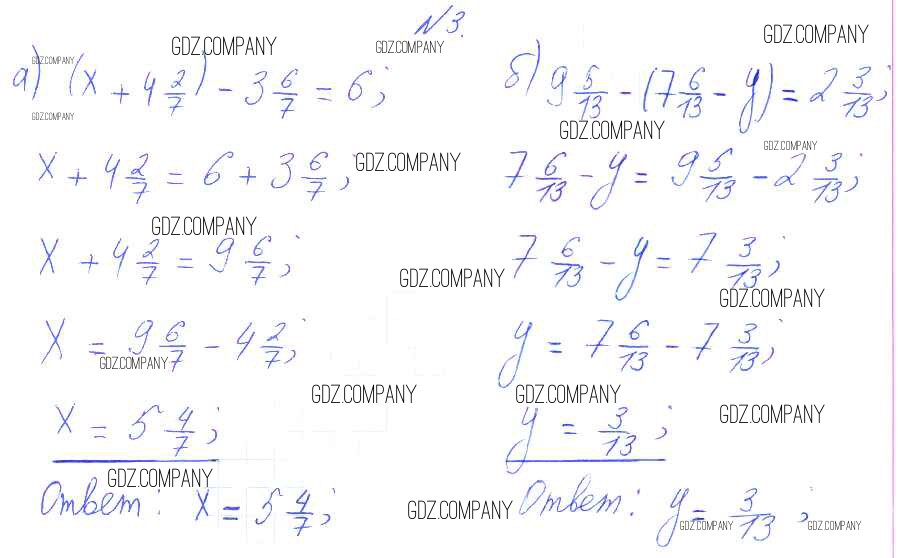 N3.
GDZ.COMPANY
GDZ.COMPANY
GDZ.COMPANY
а) (x + 4 2/7) - 3 6/7 = 6;
GDZ.COMPANY
x + 4 2/7 = 6 + 3 6/7;
GDZ.COMPANY
GDZ.COMPANY
x + 4 2/7 = 9 6/7;
GDZ.COMPANY
x = 9 6/7 - 4 2/7;
GDZ.COMPANY
GDZ.COMPANY
x = 5 4/7;
GDZ.COMPANY
Ответ: x = 5 4/7;
GDZ.COMPANY
GDZ.COMPANY
б) 9 5/13 - (7 6/13 - y) = 2 3/13;
GDZ.COMPANY
GDZ.COMPANY
7 6/13 - y = 9 5/13 - 2 3/13;
7 6/13 - y = 7 3/13;
GDZ.COMPANY
y = 7 6/13 - 7 3/13;
GDZ.COMPANY
GDZ.COMPANY
y = 3/13;
Ответ: y = 3/13;
GDZ.COMPANY
GDZ.COMPANY